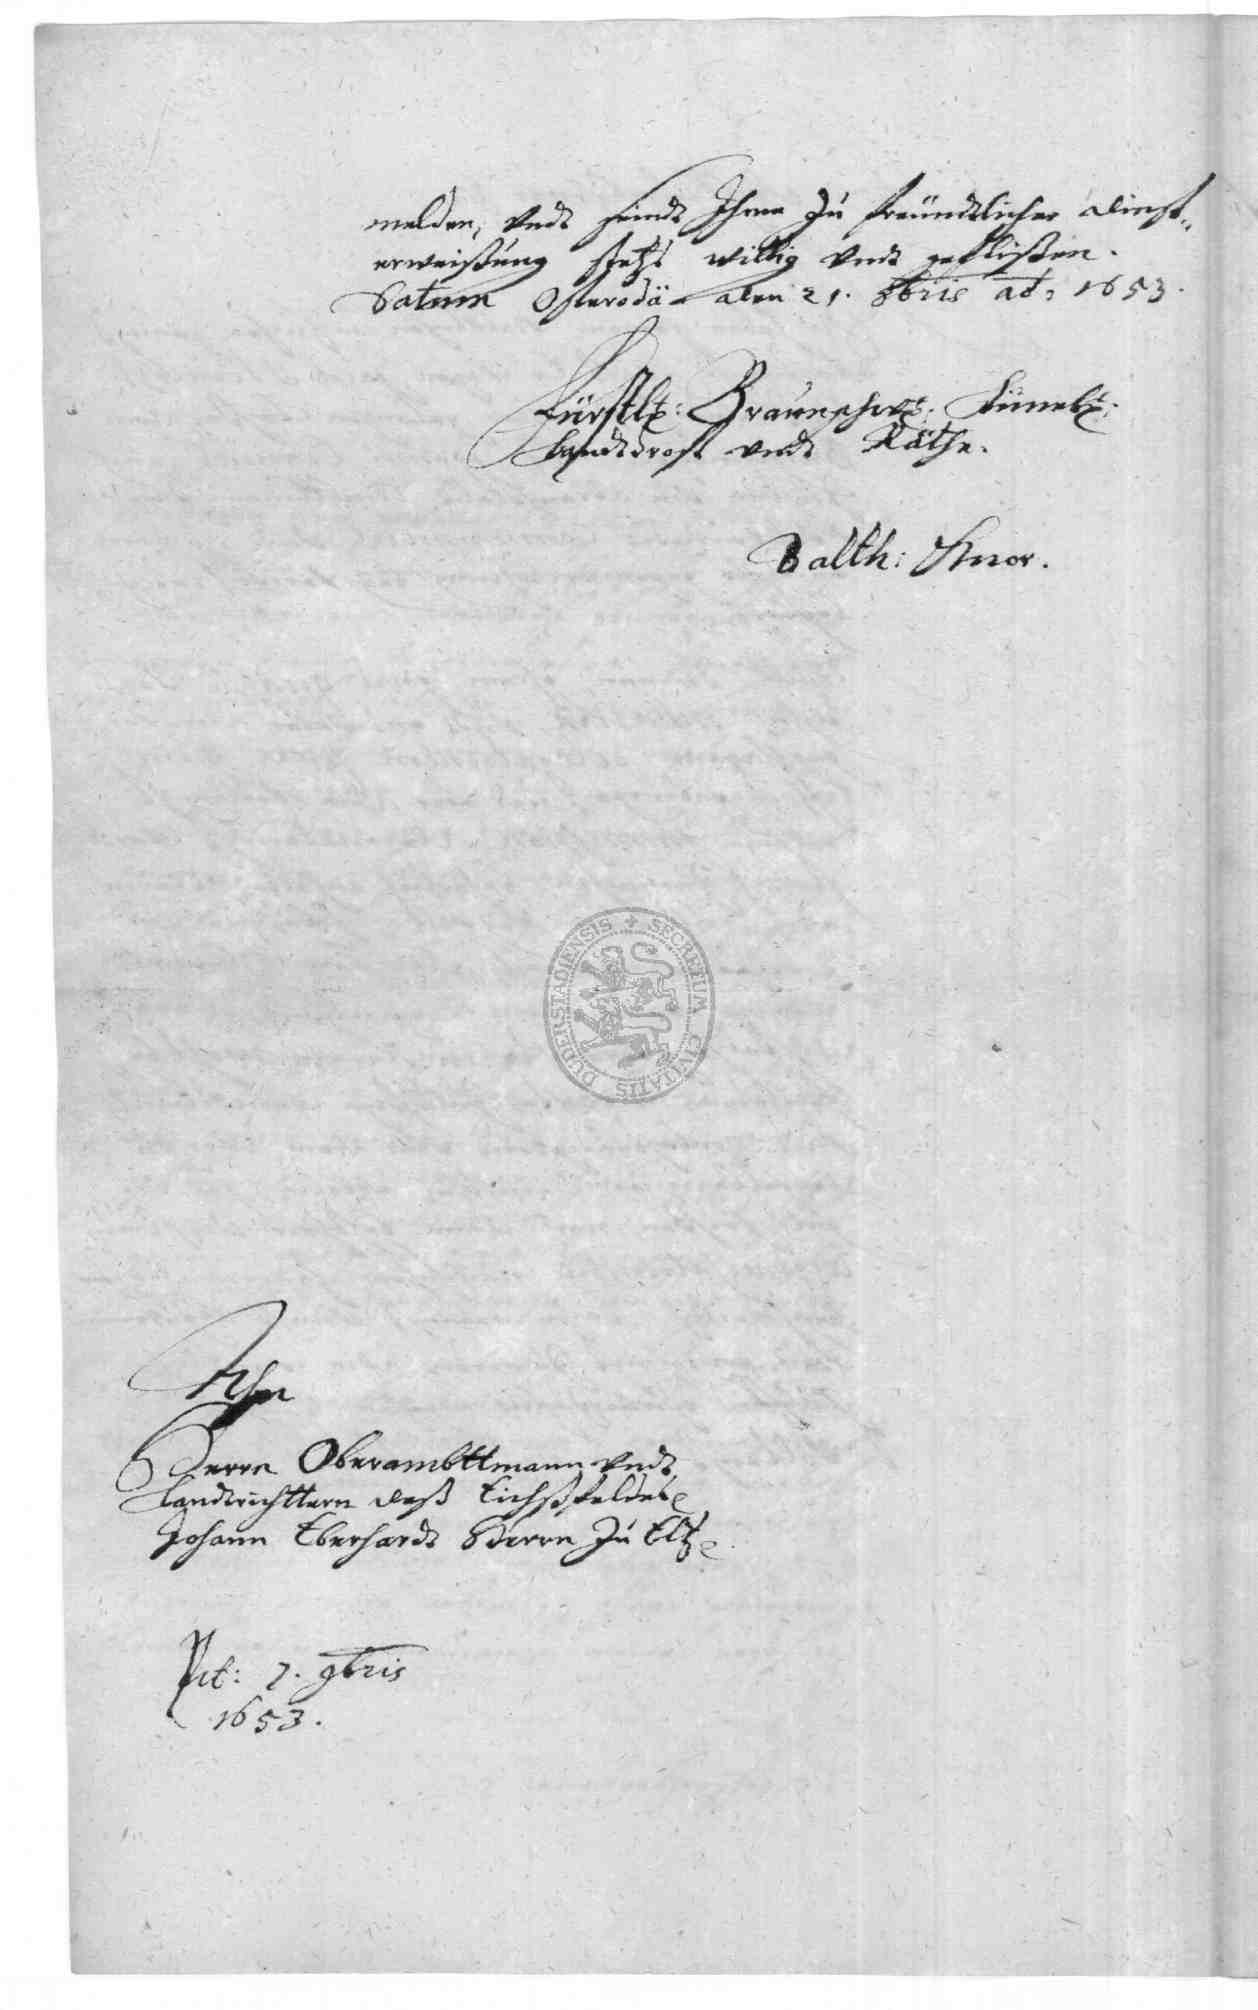 melden, undt seindt Ihme zu freündtlicher dienst-
erweißung stehts willig undt geflißen.
Datum Osteroda den 21. 8bris ao: 1653.
Fürstl: Braunschw: Lüneb:
Landtdrost undt Räthe.
Balth: Knor.
SECRETUM CIVITATIS DUDERSTADIENSIS
Ahn
Herrn Oberambttmann undt
Landtrichttern deß Eichßfeldes
Johann Eberhardt Herrn zu Eltz
Pt: 7. 9bris
1653.